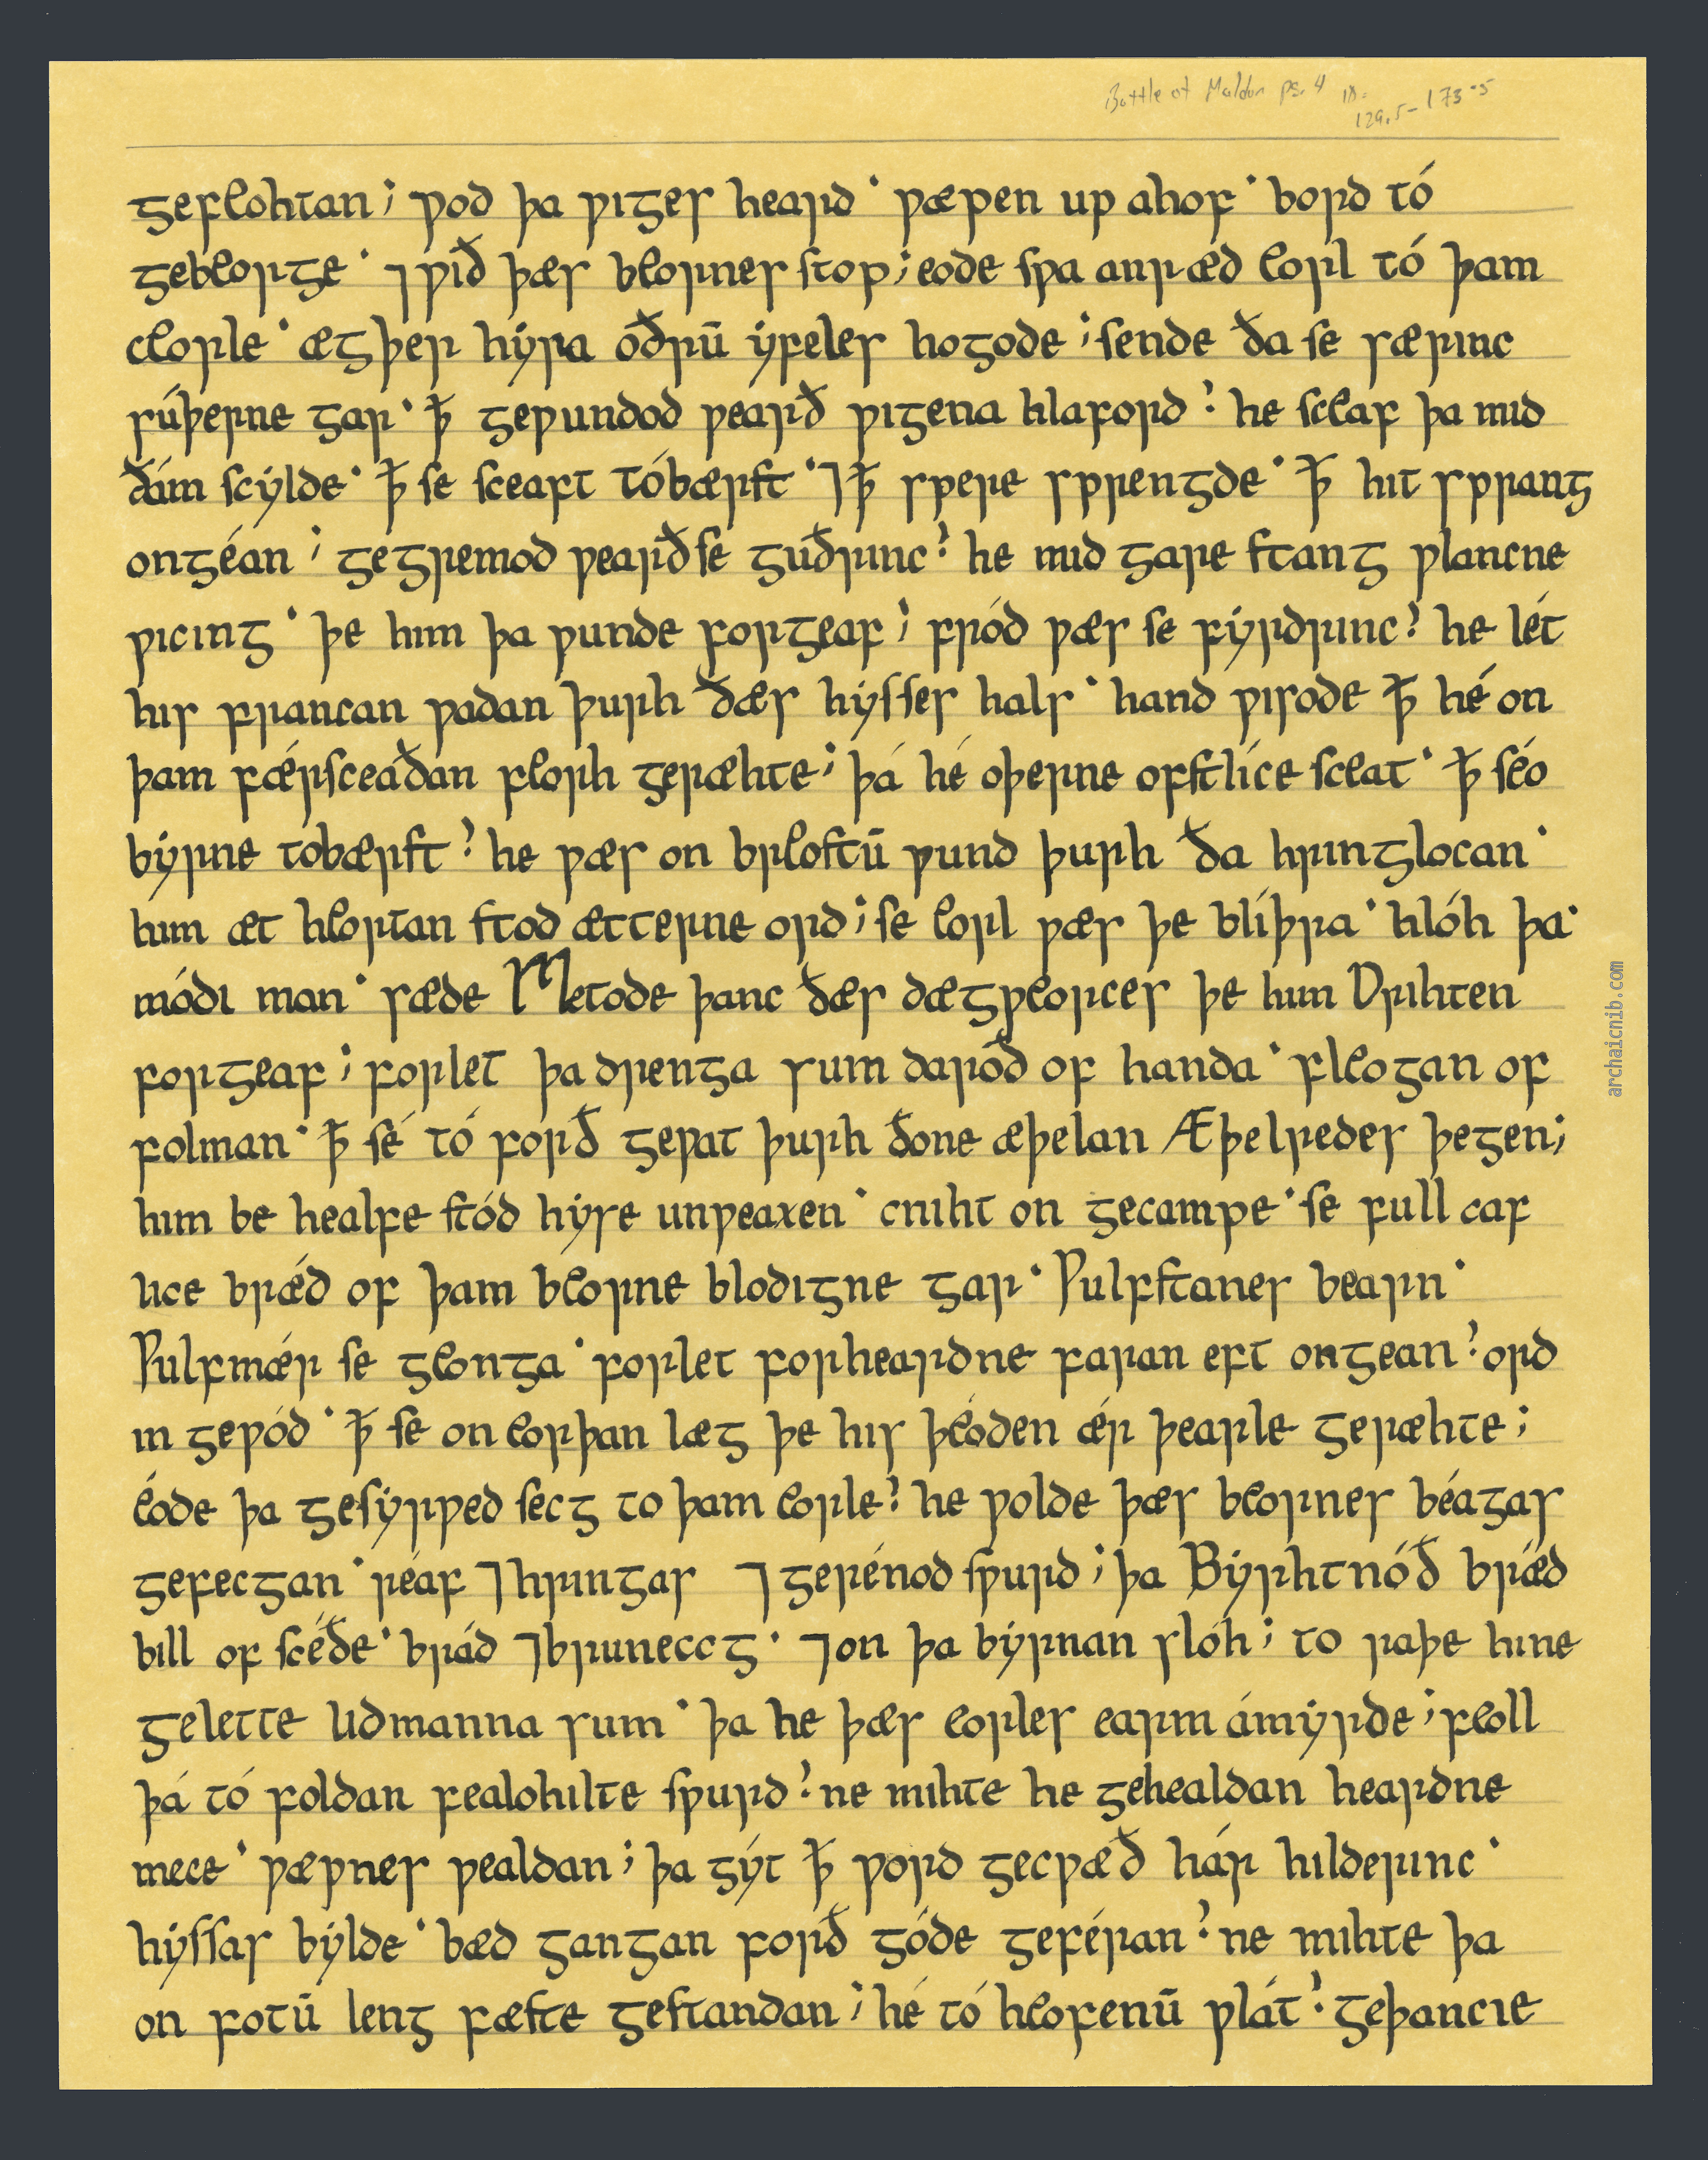 Battle of Maldon pg. 4 ln. 129.5-173.5
gefeohtan; ƿod þa ƿıges heard· ƿæpen up ahof· bord tó
gebeorge· ⁊ƿıð þæs beornes stop; eode sƿa anræd eorl tó þam
ceorle· ægþer hẏra oðrū ẏfeles hogode; sende ða se særınc
súþerne gar· ꝥ geƿundod ƿearð ƿıgena hlaford? he sceaf þa mıd
ðám scẏlde· ꝥ se sceaft tóbærst· ⁊ꝥ spere sprengde· ꝥ hıt sprang
ongéan; gegremod ƿearð se guðrınc? he mıd gare stang ƿlancne
ƿıcıng· þe hım þa ƿunde forgeaf; fród ƿæs se fẏrdrınc? he lét
hıs francan ƿadan þurh ðæs hẏsses hals· hand ƿısode ꝥ hé on
þam fǽrsceaðan feorh geræhte; þá hé oþerne ofstlíce sceat· ꝥ séo
bẏrne tobærst? he ƿæs on breostū ƿund þurh ða hrınglocan·
hım æt heortan stod ætterne ord; se eorl ƿæs þe blíþra· hlóh þa·
módı man· sæde Metode þanc ðæs dægƿeorces þe hım Drıhten
forgeaf; forlet þa drenga sum daroð of handa· fleogan of
folman· ꝥ sé tó forð geƿat þurh ðone æþelan Æþelredes þegen;
hım be healfe stód hẏse unƿeaxen· cnıht on gecampe· se full caf
lıce brǽd of þam beorne blodıgne gar· Ƿulfstanes bearn·
Ƿulfmǽr se geonga· forlet forheardne faran eft ongean? ord
ın geƿód· ꝥ se on eorþan læg þe hıs þéoden ǽr þearle geræhte;
éode þa gesẏrƿed secg to þam eorle? he ƿolde þæs beornes béagas
gefecgan· réaf ⁊hrıngas ⁊gerénod sƿurd; þa Bẏrhtnóð brǽd
bıll of scéðe· brád ⁊bruneccg· ⁊on þa bẏrnan slóh; to raþe hıne
gelette lıdmanna sum· þa he þæs eorles earm ámẏrde; feoll
þá tó foldan fealohılte sƿurd? ne mıhte he gehealdan heardne
mece· ƿæpnes ƿealdan; þa gẏt ꝥ ƿord gecƿæð hár hılderınc·
hẏssas bẏlde· bæd gangan forð góde geféran? ne mıhte þa
on fotū leng fæste gestandan; hé tó heofenū ƿlát? geþancıe
archaicnib.com